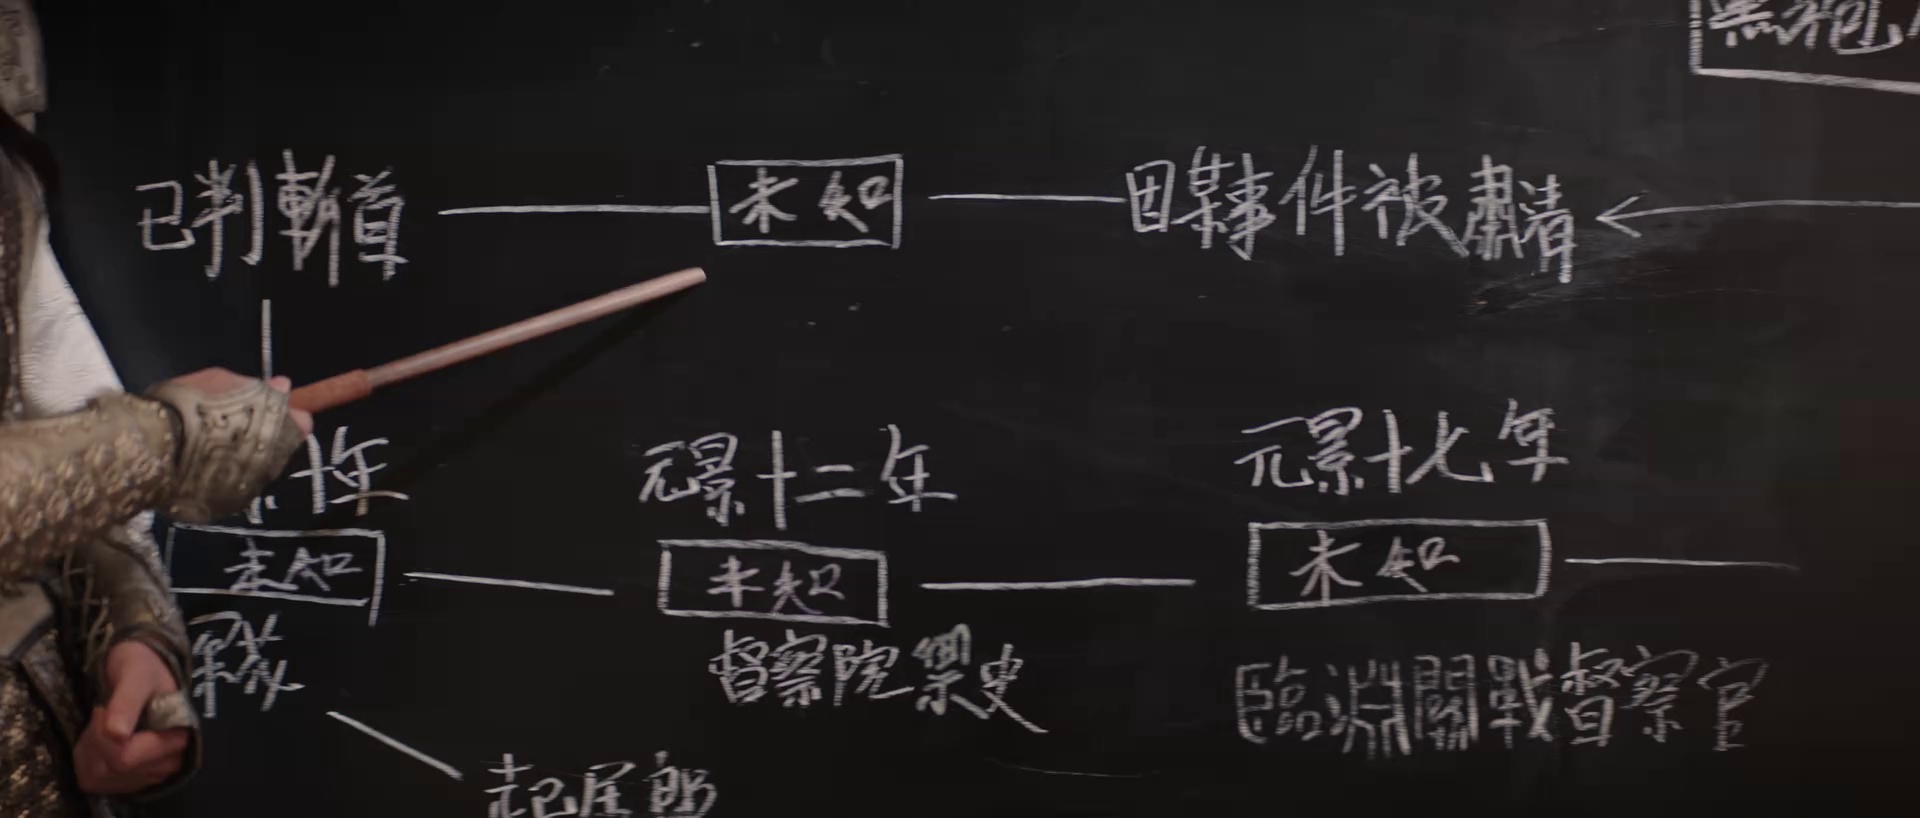 黑袍
已判斬首
未知
因某事件被肅清
十年
元景十二年
元景十七年
未知
未知
未知
督察院禦史
臨淵關戰督察官
起居郎